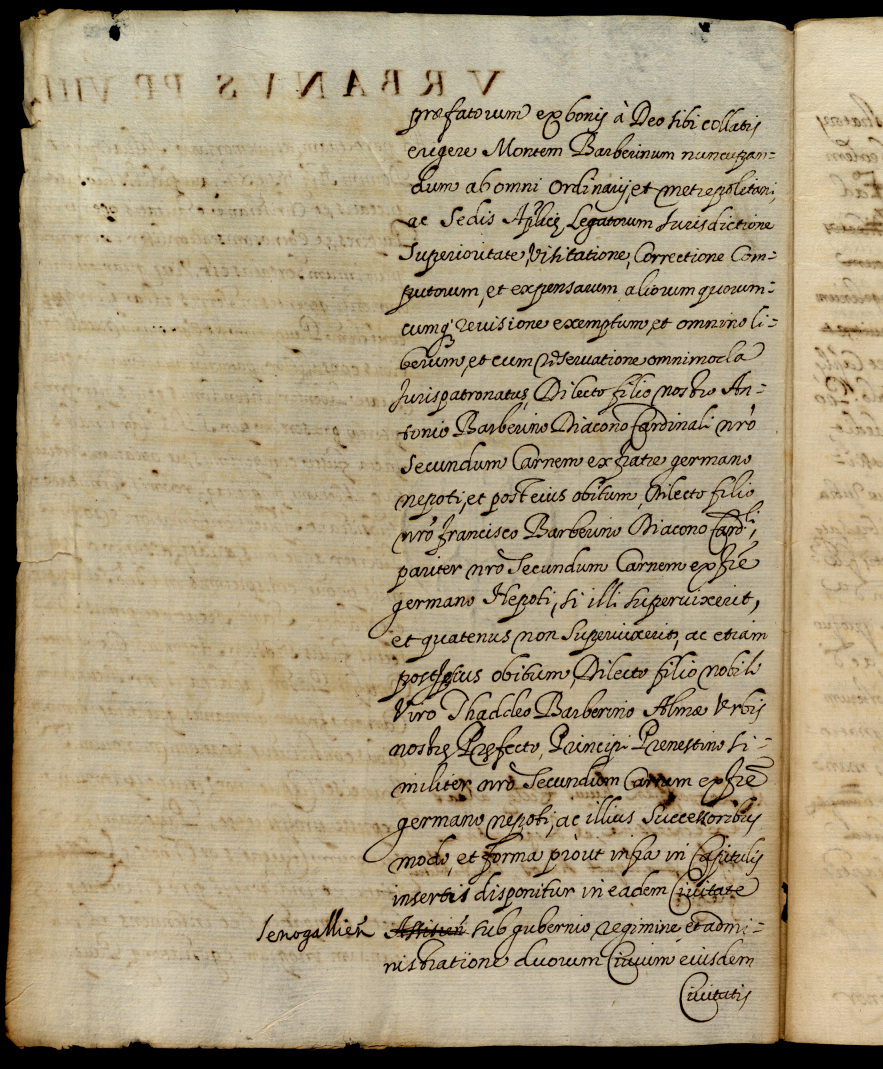 præfatorum ex bonis à Deo sibi collatis
erigere Montem Barberinum nuncupan=
dum ab omni Ordinarij, et Metropolitani,
ac Sedis Aplicę Legatorum Jurisdictione
Superioritate, Visitatione, Correctione Com=
putorum, et expensarum aliorum quorum=
cumq' revisione exemptum, et omnino li=
berum, et cum reservatione omnimoda
Jurispatronatus, Dilecto filio nostro An=
tonio Barberino Diacono Cardinali nr̄o
Secundum Carnem ex fratre germano
nepoti, et post eius obitum, Dilecto filio
nr̄o Francisco Barberino Diacono Card.li,
pariter nr̄o Secundum Carnem ex fr̄e
germano Nepoti, si illi supervixerit,
et quatenus non Supervixerit, ac etiam
post ipsius obitum, Dilecto filio nobili
Viro Thaddeo Barberino Almæ Urbis
nostrę Pręfecto, Principi Prenestino si=
militer nr̄o Secundum Carnem ex fr̄e
germano nepoti, ac illius Successoribus
modo, et forma pròut infra in Capitulis
insertis disponitur in eadem Civitate
Senogallien̄ Assisien̄ sub gubernio, regimine, et admi=
nistratione duorum Civium eiusdem
Civitatis